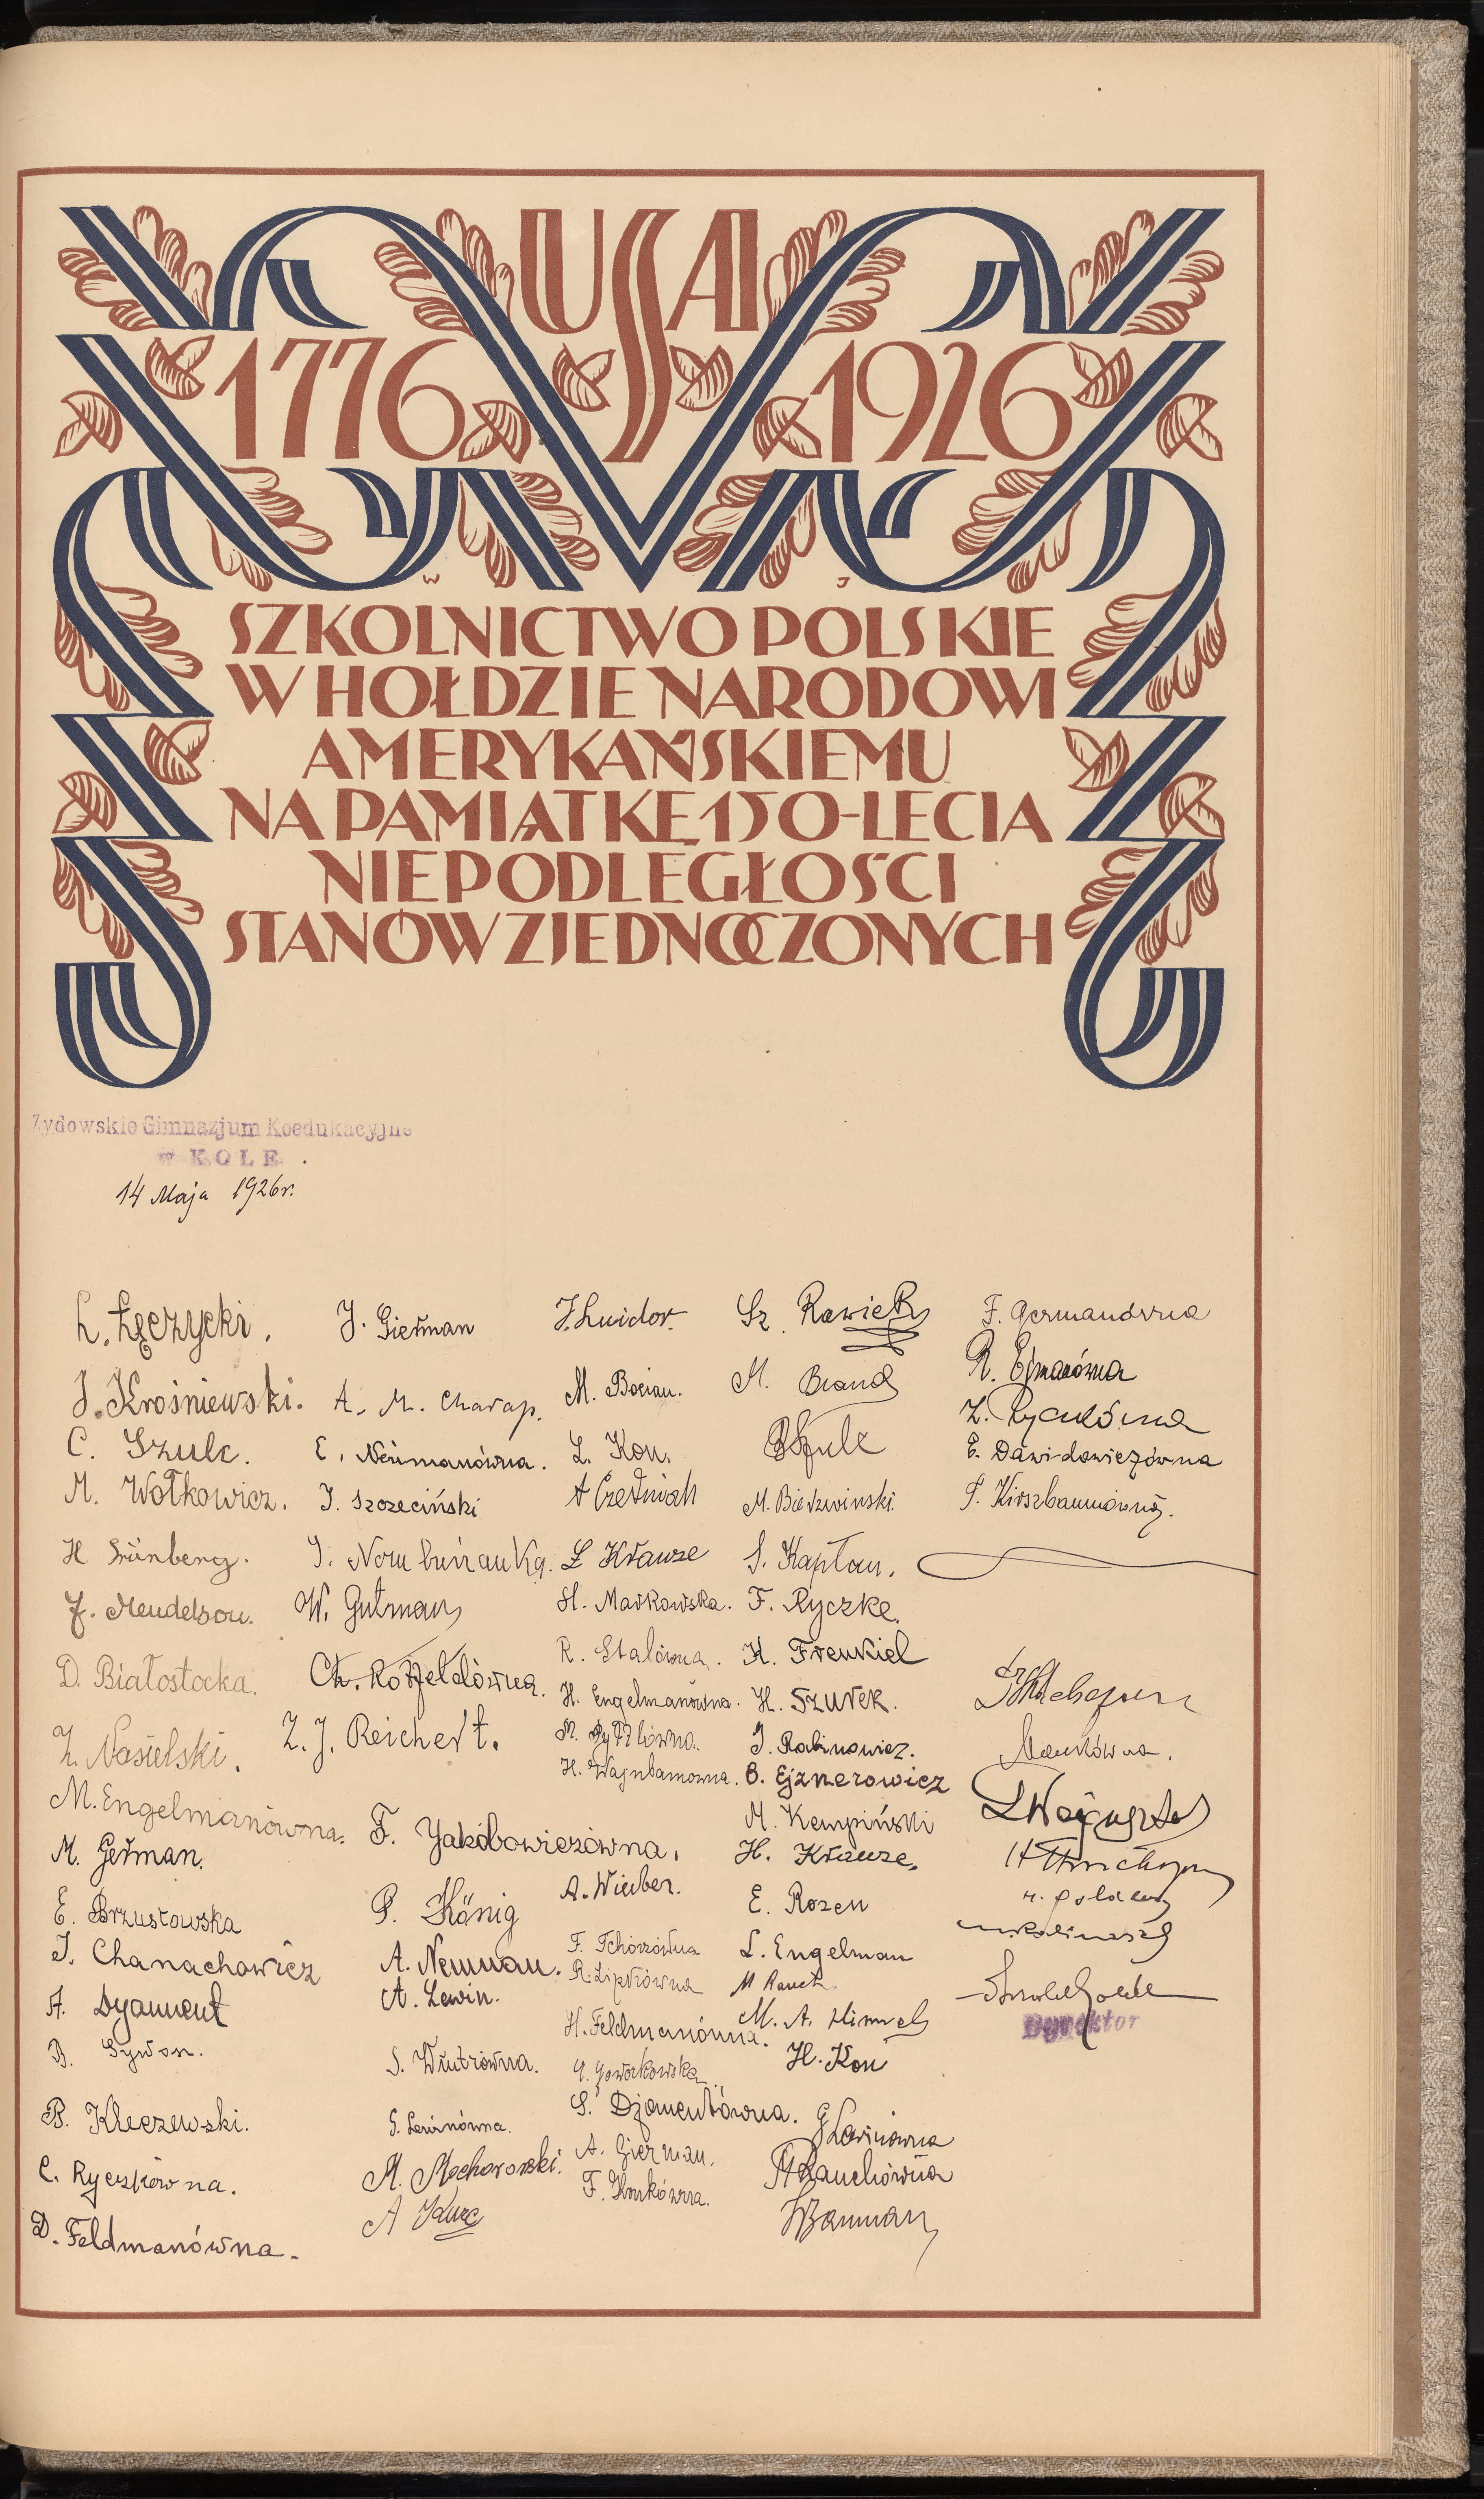 USA
1776 1926
W J
SZKOLNICTWO POLSKIE
W HOŁDZIE NARODOWI
AMERYKAŃSKIEMU
NA PAMIĄTKĘ 150-LECIA
NIEPODLEGŁOŚCI
STANÓW ZJEDNOCZONYCH
Żydowskie Gimnazjum Koedukacyjne
w KOLE
14 Maja 1926r.
Ł. Łęczycki.
J. Krośniewski.
C. Szulc.
M. Wołkowicz.
H Grünberg.
J. Mendelson.
D. Białostocka.
Z. Nasielski.
M. Engelmanówna.
M. German.
E. Brzustowska
J. Chanachowicz
A. Dyament
B.
B. Kleczewski.
C. Ryczkówna.
D. Feldmanówna.
J. Gierman
A. M. Charap.
E. Neumanówna.
J. Szczeciński
J.
W. Gutman
Ch. Rotfeldówna.
Z. J. Reichert.
F. Jakóbowiczówna.
P. König
A. Neuman.
A. Lewin.
S. Wintrówna.
G. Lewinówna.
M. Mochorowski.
A
J. Luidor.
M. Bocian.
L. Kon.
A Czerniak
L Krauze
H. Markowska.
R. Stalówna.
H. Engelmanówna.
H. Wajnbamowna.
A. Winber.
F. Tchórzówna
R. Lipkówna
H. Feldmanówna.
S. Djamentówna.
A. Gierman.
F.
Sz. Rawicki
M. Brand
Szulc
M. Bierzwinski.
S. Kapłan.
F. Ryczke.
H. Frenkiel
H. Szurek.
J. Rabinowicz.
B. Ejznerowicz
M. Kempiński
H. Krauze.
E. Rozen
L. Engelman
M Rauch
M. A. Himel
H. Kon
G Lewinówna
H Rauchówna
Bauman
F. Germanówna
R. Ejmanówna
Z.
E. Dawidowiczówna
P. Kirszbaumówna.
Dyrektor